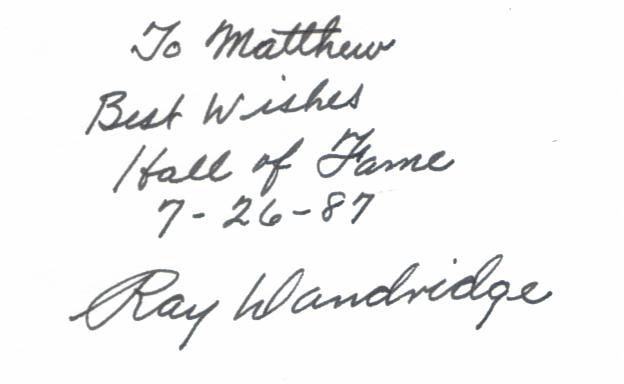 To Matthew
Best Wishes
Hall of Fame
7-26-87
Ray Dandridge